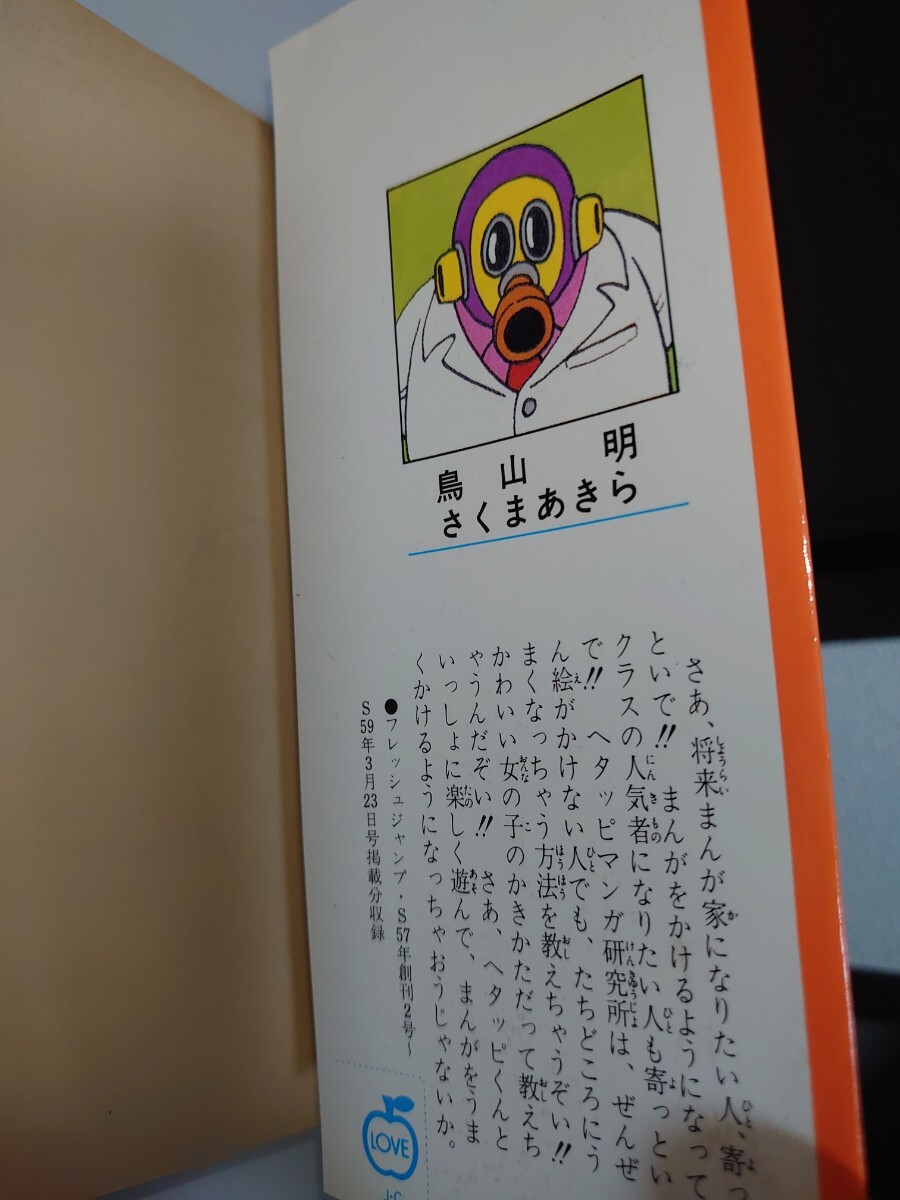 鳥山 明
さくまあきら
さあ、将来まんが家になりたい人、寄っ
といで!! まんがをかけるようになって
クラスの人気者になりたい人も寄っとい
で!! ヘタッピマンガ研究所は、ぜんぜ
ん絵がかけない人でも、たちどころにう
まくなっちゃう方法を教えちゃうぞい!!
かわいい女の子のかきかただって教えち
ゃうんだぞい!! さあ、ヘタッピくんと
いっしょに楽しく遊んで、まんがをうま
くかけるようになっちゃおうじゃないか。
●フレッシュジャンプ・S57年創刊2号〜
S59年3月23日号掲載分収録
LOVE